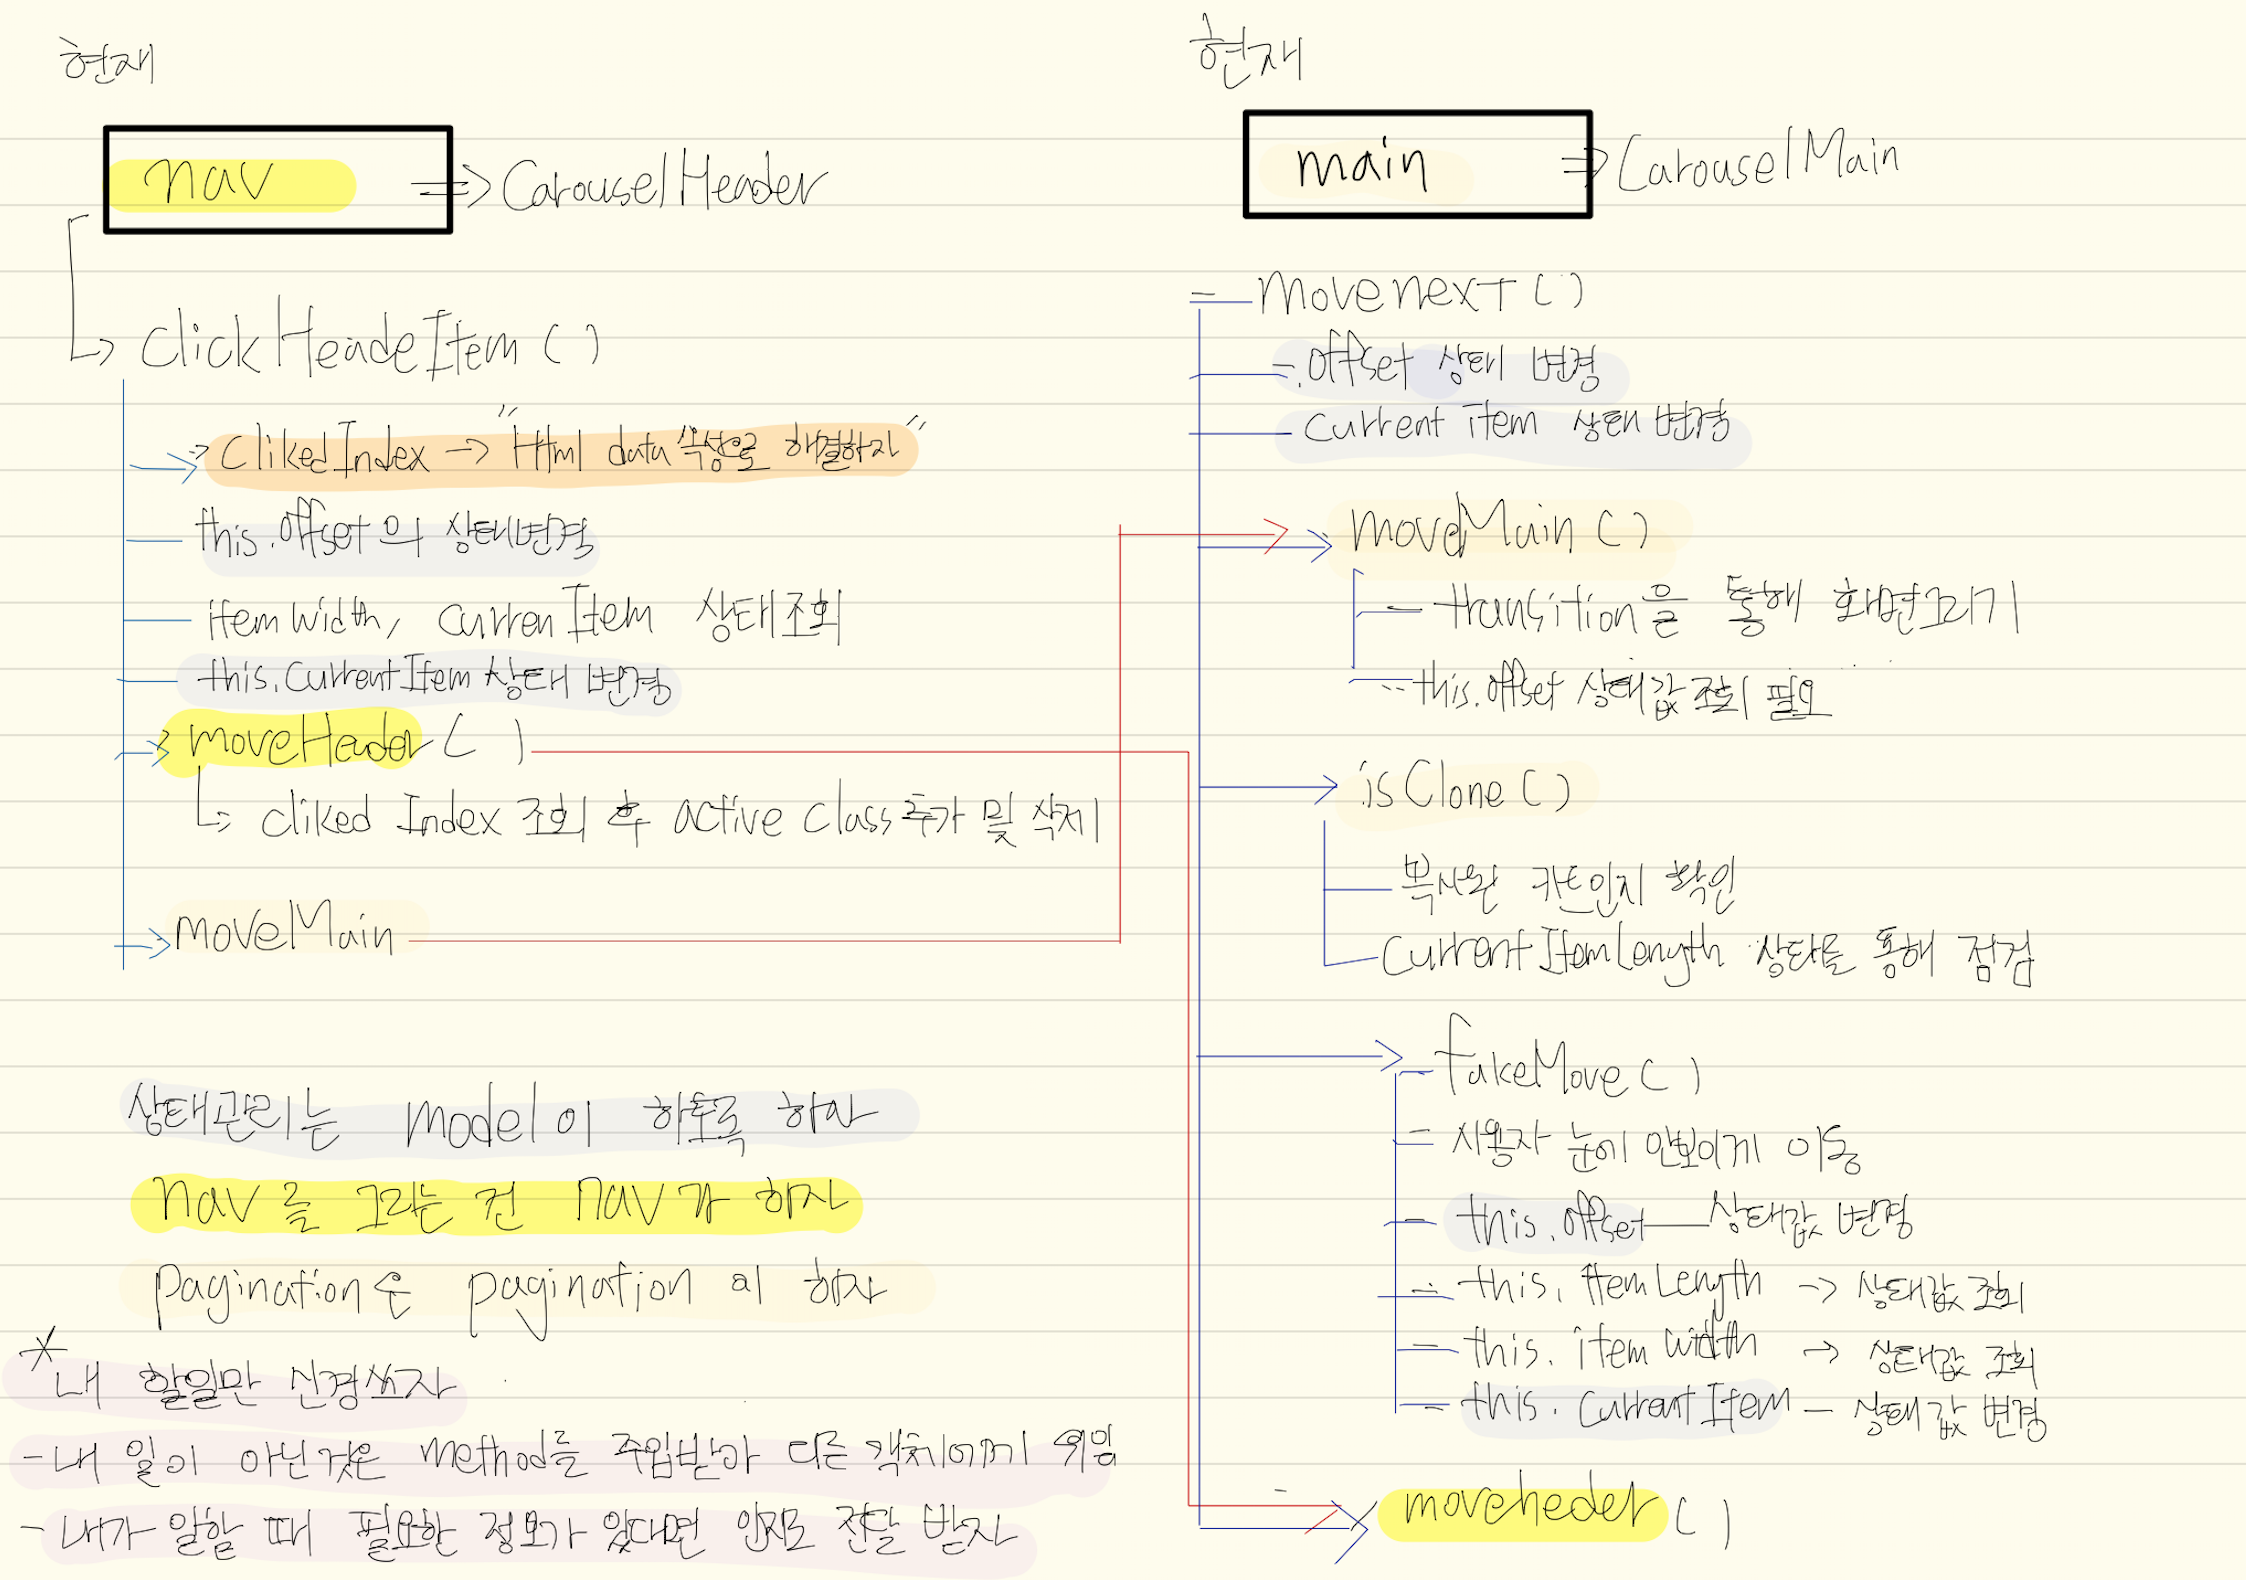 현재
nav => CarouselHeader
ClickHeadeItem ( )
ClikedIndex -> "Html data 속성으로 해결하자"
this.offset의 상태변경
item width, curren Item 상태조회
this.CurrentItem 상태 변경
moveHeader ( )
cliked Index 조회 후 active class 추가 및 삭제
moveMain
상태관리는 model이 하도록 하자
nav를 그리는 건 nav가 하자
pagination은 pagination이 하자
* 내 할일만 신경쓰자
- 내 일이 아닌것은 method를 주입받아 다른 객체에게 위임
- 내가 일할 때 필요한 정보가 있다면 인자로 전달 받자
현재
main => CarouselMain
- movenext ( )
- .offset 상태 변경
current item 상태 변경
moveMain ( )
- transition을 통해 화면그리기
- this.offset 상태값 조회 필요
isClone ( )
복사된 카드인지 확인
CurrentItemLength 상태를 통해 점검
- fakeMove ( )
- 사용자 눈에 안보이게 이동
- this.offset — 상태값 변경
- this.ItemLength -> 상태값 조회
- this.item width -> 상태값 조회
- this.CurrentItem - 상태값 변경
moveheder ( )